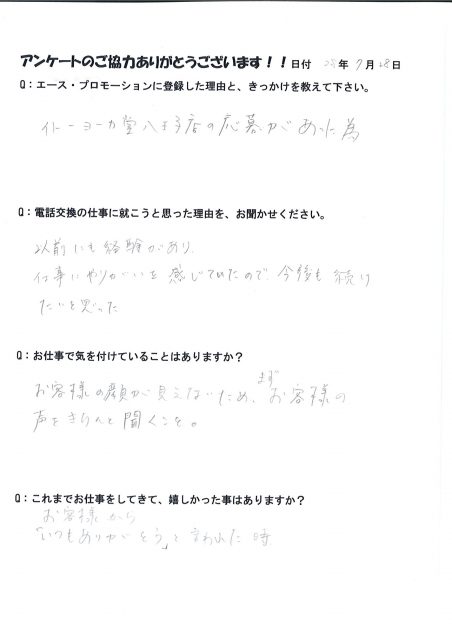 アンケートのご協力ありがとうございます！！日付 28年 7月 28日
Q：エース・プロモーションに登録した理由と、きっかけを教えて下さい。
イトーヨーカ堂八王子店の応募があった為
Q：電話交換の仕事に就こうと思った理由を、お聞かせください。
以前にも経験があり、
仕事にやりがいを感じていたので、今後も続け
たいと思った
Q：お仕事で気を付けていることはありますか？
お客様の顔が見えないため、まずお客様の
声をきちんと聞くこと。
Q：これまでお仕事をしてきて、嬉しかった事はありますか？
お客様から
「いつもありがとう」と言われた時